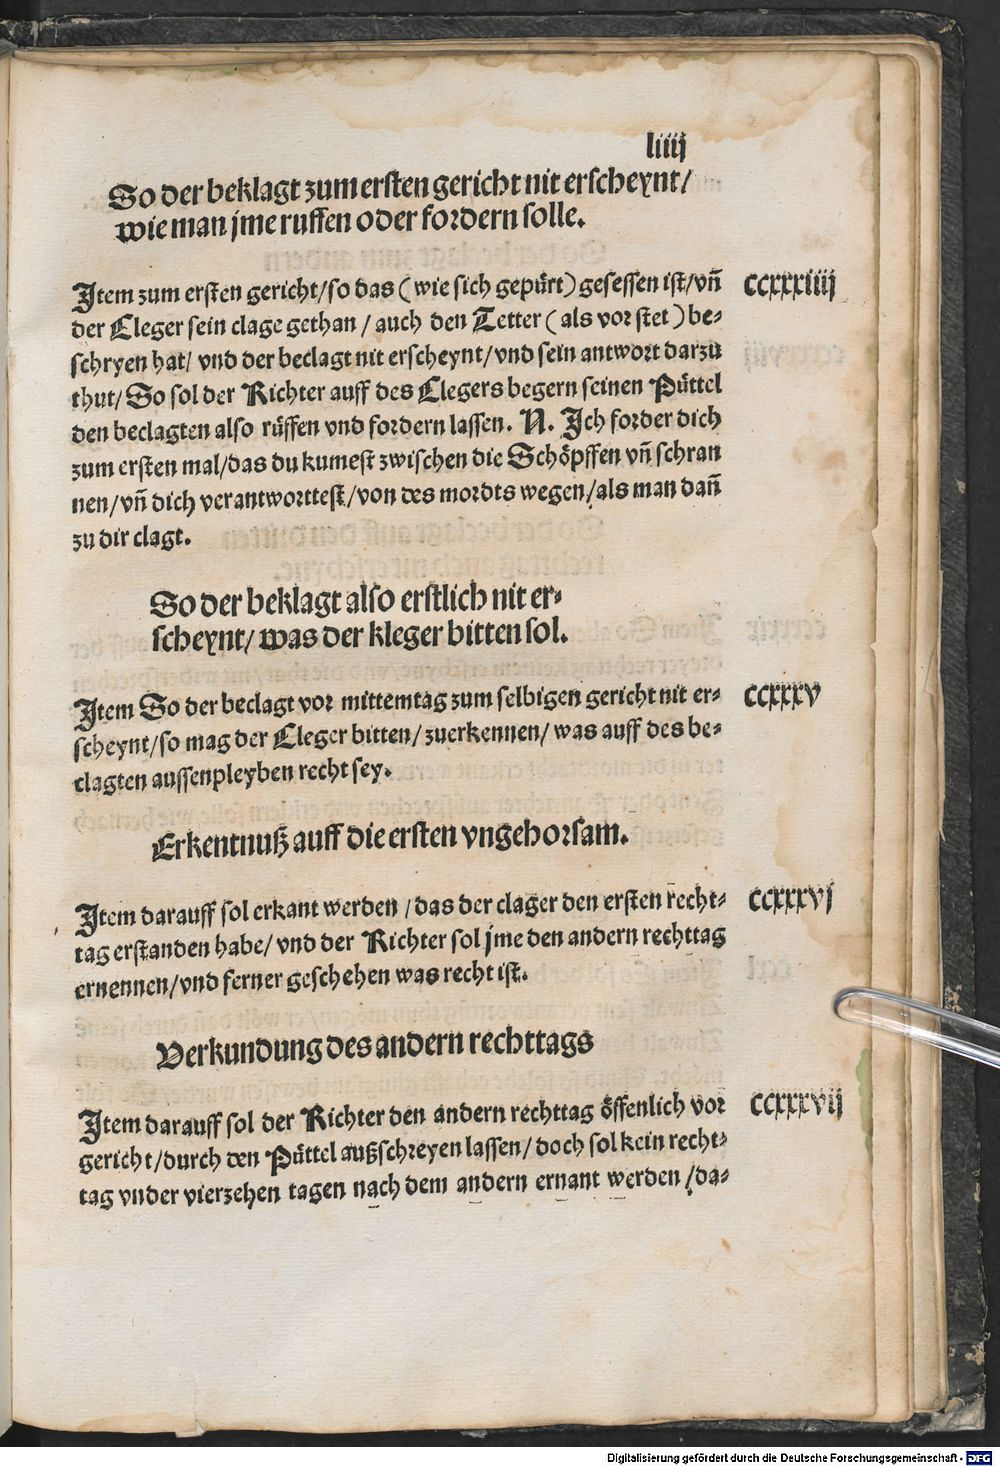 liiij
So der beklagt zum ersten gericht nit erscheynt/
wie man jme ruffen oder fordern solle.
Item zum ersten gericht/so das (wie sich gepürt) gesessen ist/vñ
ccxxxiiij
der Cleger sein clage gethan / auch den Tetter (als vor stet) be-
schryen hat/ vnd der beclagt nit erscheynt/vnd sein antwort darzu
thut/ So sol der Richter auff des Clegers begern seinen Püttel
den beclagten also rüffen vnd fordern lassen. N. Ich forder dich
zum ersten mal/das du kumest zwischen die Schöpffen vñ schran
nen/vñ dich verantworttest/von des mordts wegen/als man dañ
zu dir clagt.
So der beklagt also erstlich nit er-
scheynt/ was der kleger bitten sol.
Item So der beclagt vor mittemtag zum selbigen gericht nit er-
ccxxxv
scheynt/so mag der Cleger bitten/ zuerkennen/ was auff des be-
clagten aussenpleyben recht sey.
Erkentnuß auff die ersten vngehorsam.
Item darauff sol erkant werden /das der clager den ersten recht-
ccxxxvj
tag erstanden habe/ vnd der Richter sol jme den andern rechttag
ernennen/vnd ferner geschehen was recht ist.
Verkundung des andern rechttags
Item darauff sol der Richter den andern rechttag öffenlich vor
ccxxxvij
gericht/durch den Püttel außschreyen lassen/ doch sol kein recht-
tag vnder vierzehen tagen nach dem andern ernant werden /da-
Digitalisierung gefördert durch die Deutsche Forschungsgemeinschaft - DFG